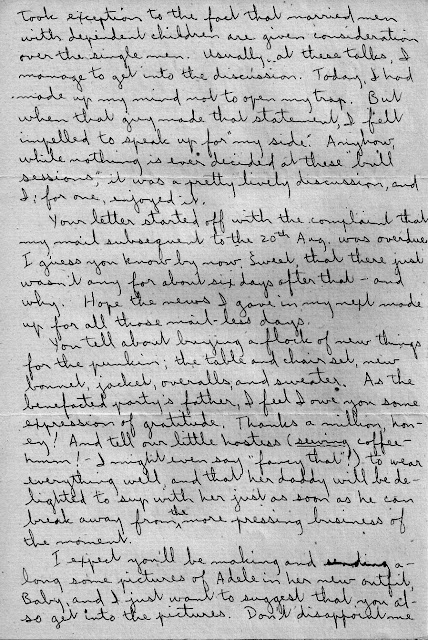 took exception to the fact that married men
with dependent children are given consideration
over the single men. Usually, at these talks, I
manage to get into the discussion. Today, I had
made up my mind not to open my trap. But
when that guy made that statement, I felt
impelled to speak up for "my side." Anyhow,
while nothing is ever decided at these "bull
sessions," it was a pretty lively discussion, and
I, for one, enjoyed it.
Your letter started off with the complaint that
my mail subsequent to the 20th Aug, was overdue.
I guess you know by now, Sweet, that there just
wasn't any for about six days after that - and
why. Hope the news I gave in my next made
up for all those mail-less days.
You tell about buying a flock of new things
for the punkin; the table and chair set, new
bonnet, jacket, overalls, and sweater. As the
benefated party's father, I feel I owe you some
expression of gratitude. Thanks a million, hon-
ey! And tell our little hostess (serving coffee-
hmm! - I might even say "fawn that!") to wear
everything well, and that her daddy will be de-
lighted to sup with her just as soon as he can
break away from the more pressing business of
the moment.
I expect you'll be making and sending a-
long some pictures of Adele in her new outfit,
Baby, and I just want to suggest that you al-
so get into the pictures. Don't disappoint me